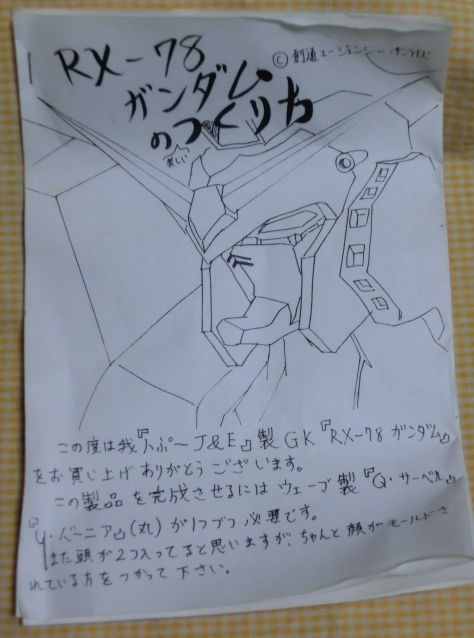 RX-78
© 創通エージェンシー・サンライズ
ガンダム
のつくり方
楽しい
この度は我『人ぷ〜J&E』製GK『RX-78ガンダム』
をお買い上げありがとうございます。
この製品を完成させるにはウェーブ製『Q・サーベル』
『V・バーニア』(丸)が1つづつ必要です。
また頭が2つ入ってると思いますが、ちゃんと顔がモールドさ
れている方をつかって下さい。